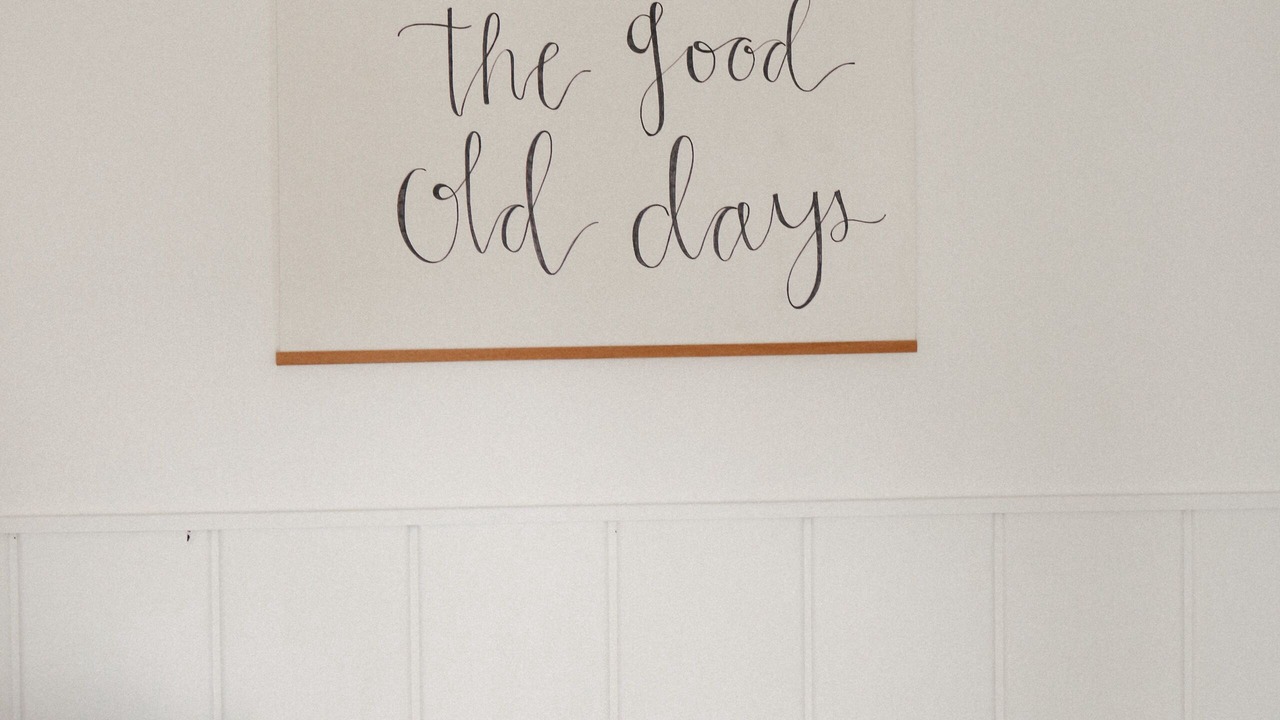 the good
Old days